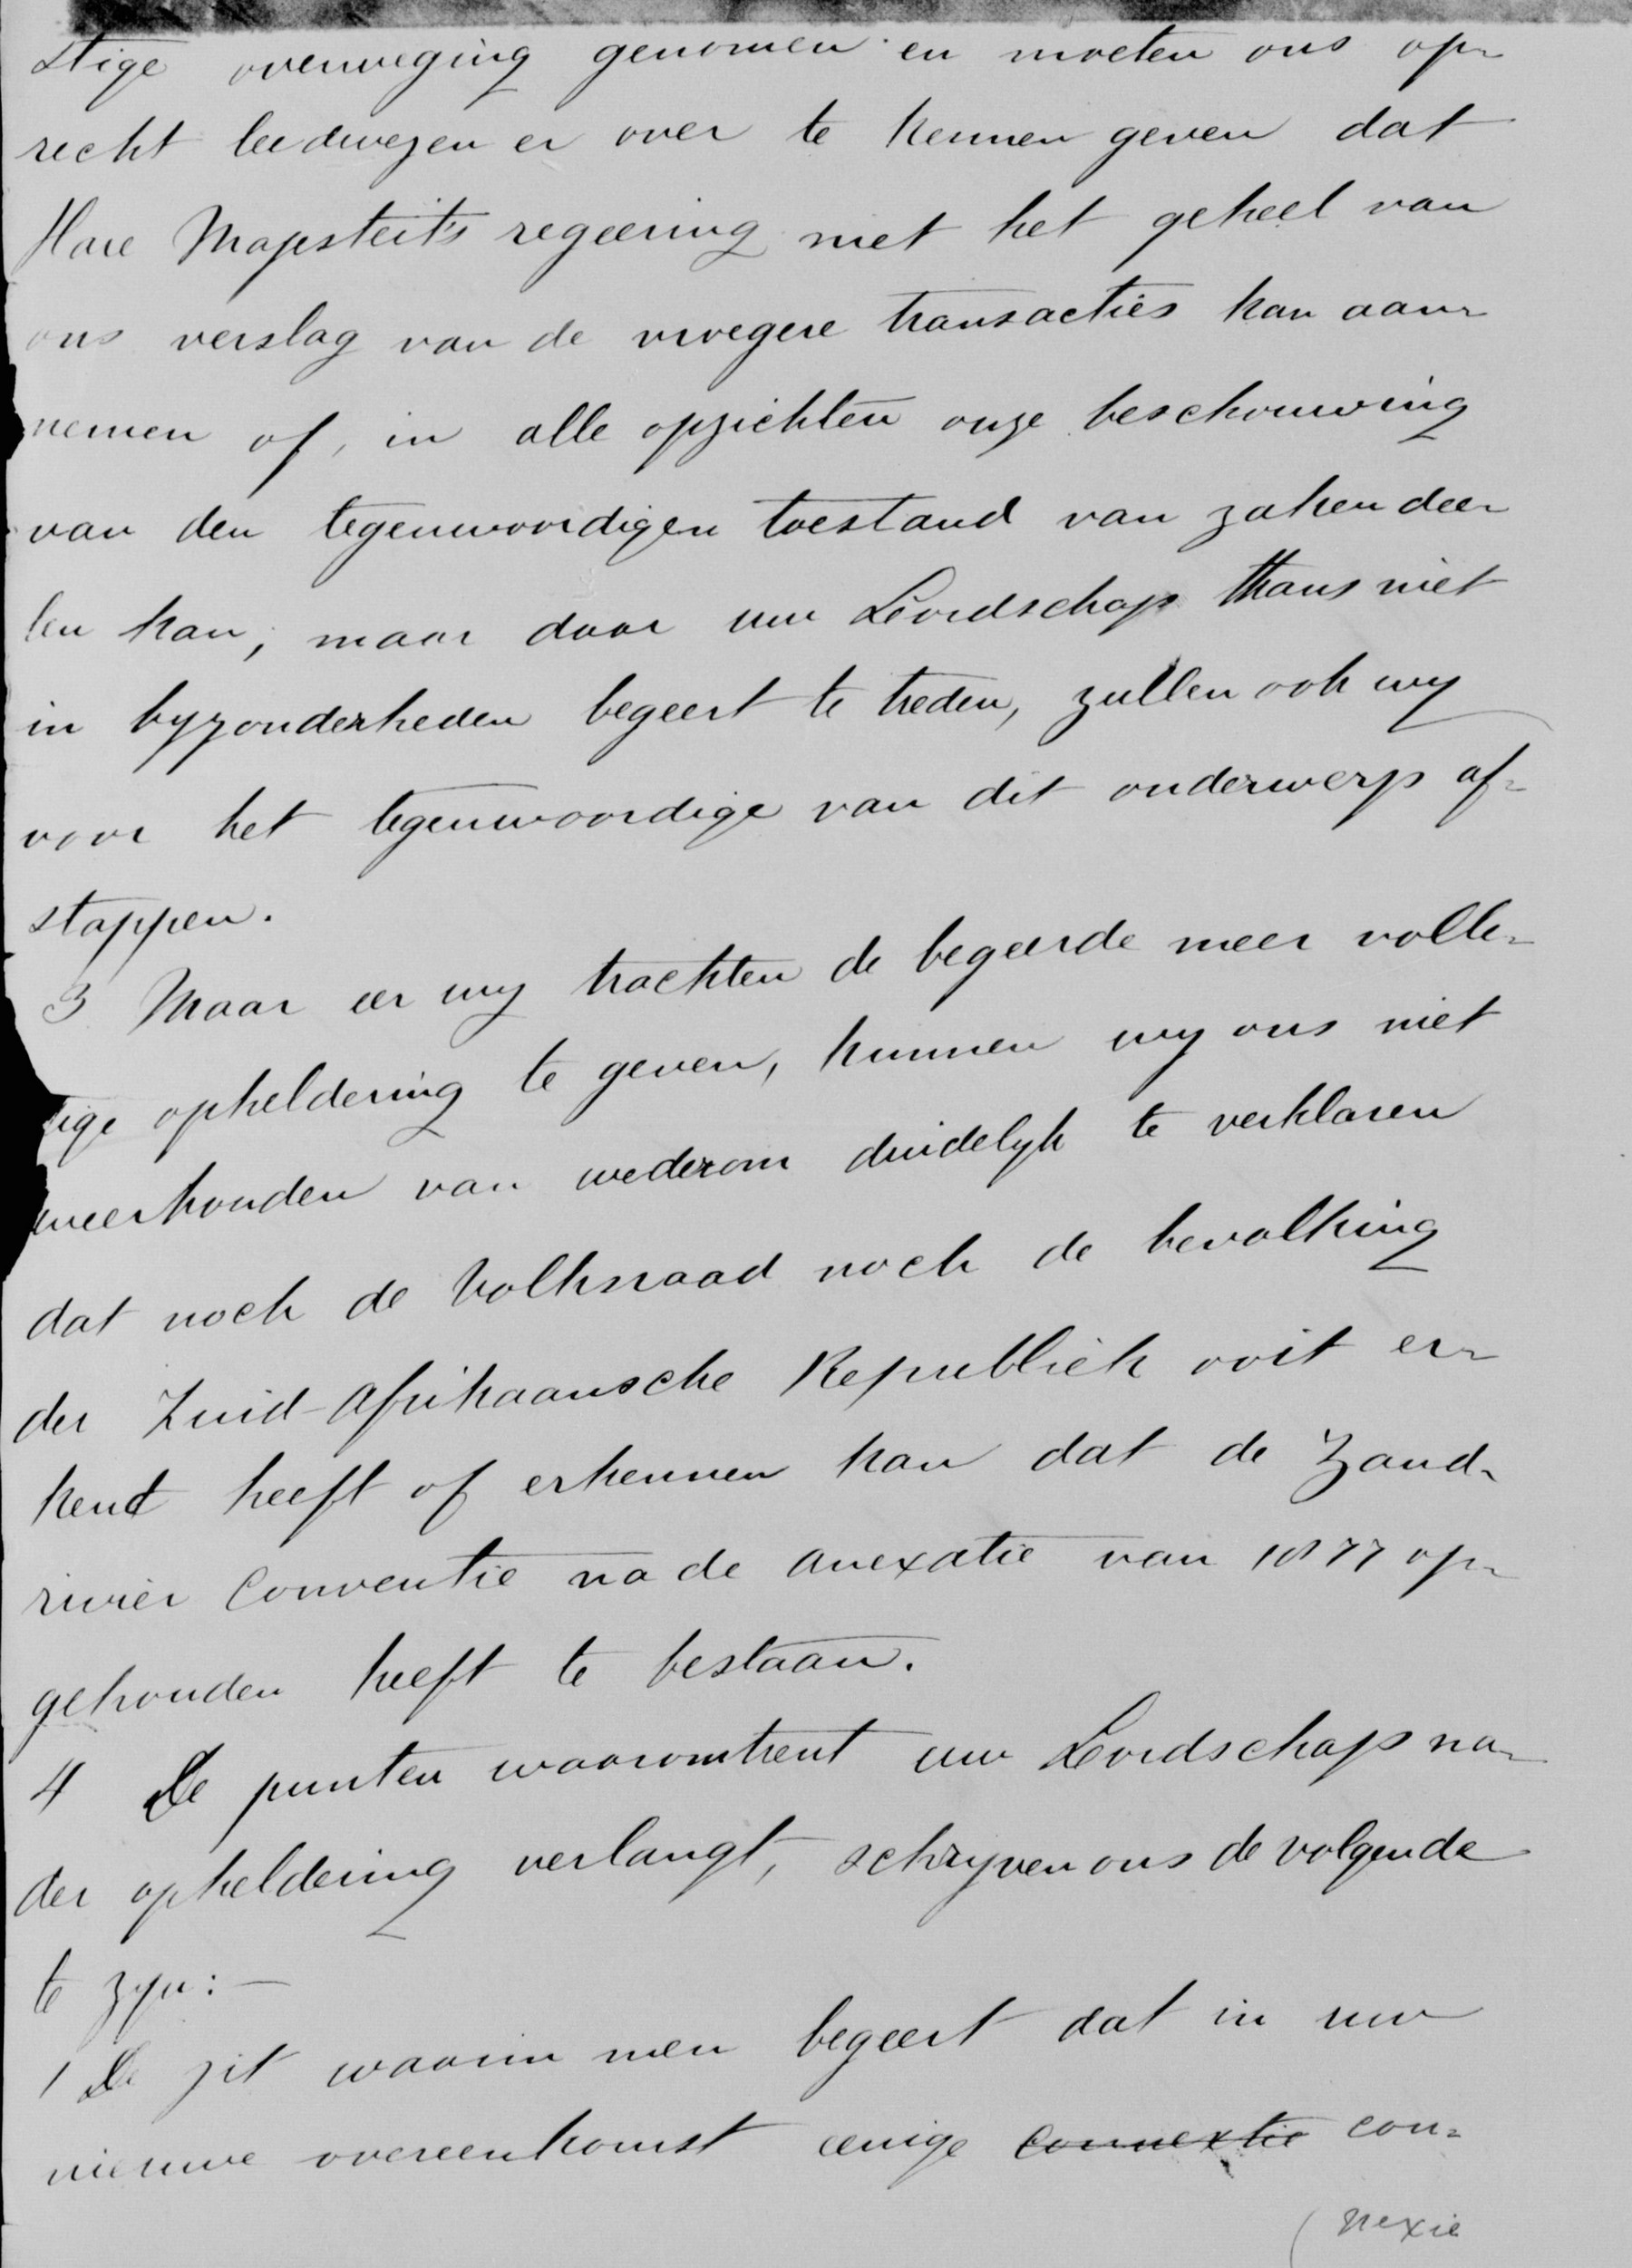 stige overweging genomen en moeten ons op-
recht leedwezen er over te kennen geven dat
Hare Majesteit's regeering niet het geheel van
ons verslag van de vroegere transacties kan aan-
nemen of, in alle opzichten onze beschouwing
van den tegenwoordigen toestand van zaken dee-
len kan; maar daar uw Lordschap thans niet
in byzonderheden begeert te treden, zullen ook wy
voor het tegenwoordige van dit onderwerp af-
stappen.
3 Maar eer wy trachten de begeerde meer volle-
dige opheldering te geven, kunnen wy ons niet
weerhouden van wederom duidelyk te verklaren
dat noch de Volksraad noch de bevolking
der Zuid-Afrikaansche Republiek ooit er-
kend heeft of erkennen kan dat de Zand-
rivier Conventie na de anexatie van 1877 op-
gehouden heeft te bestaan.
4 De punten waaromtrent uw Lordschap na-
der opheldering verlangt, schryven ons de volgende
te zyn:—
1 De zit waarin men begeert dat in uw
nieuwe overeenkomst eenige connextie con-
nexie